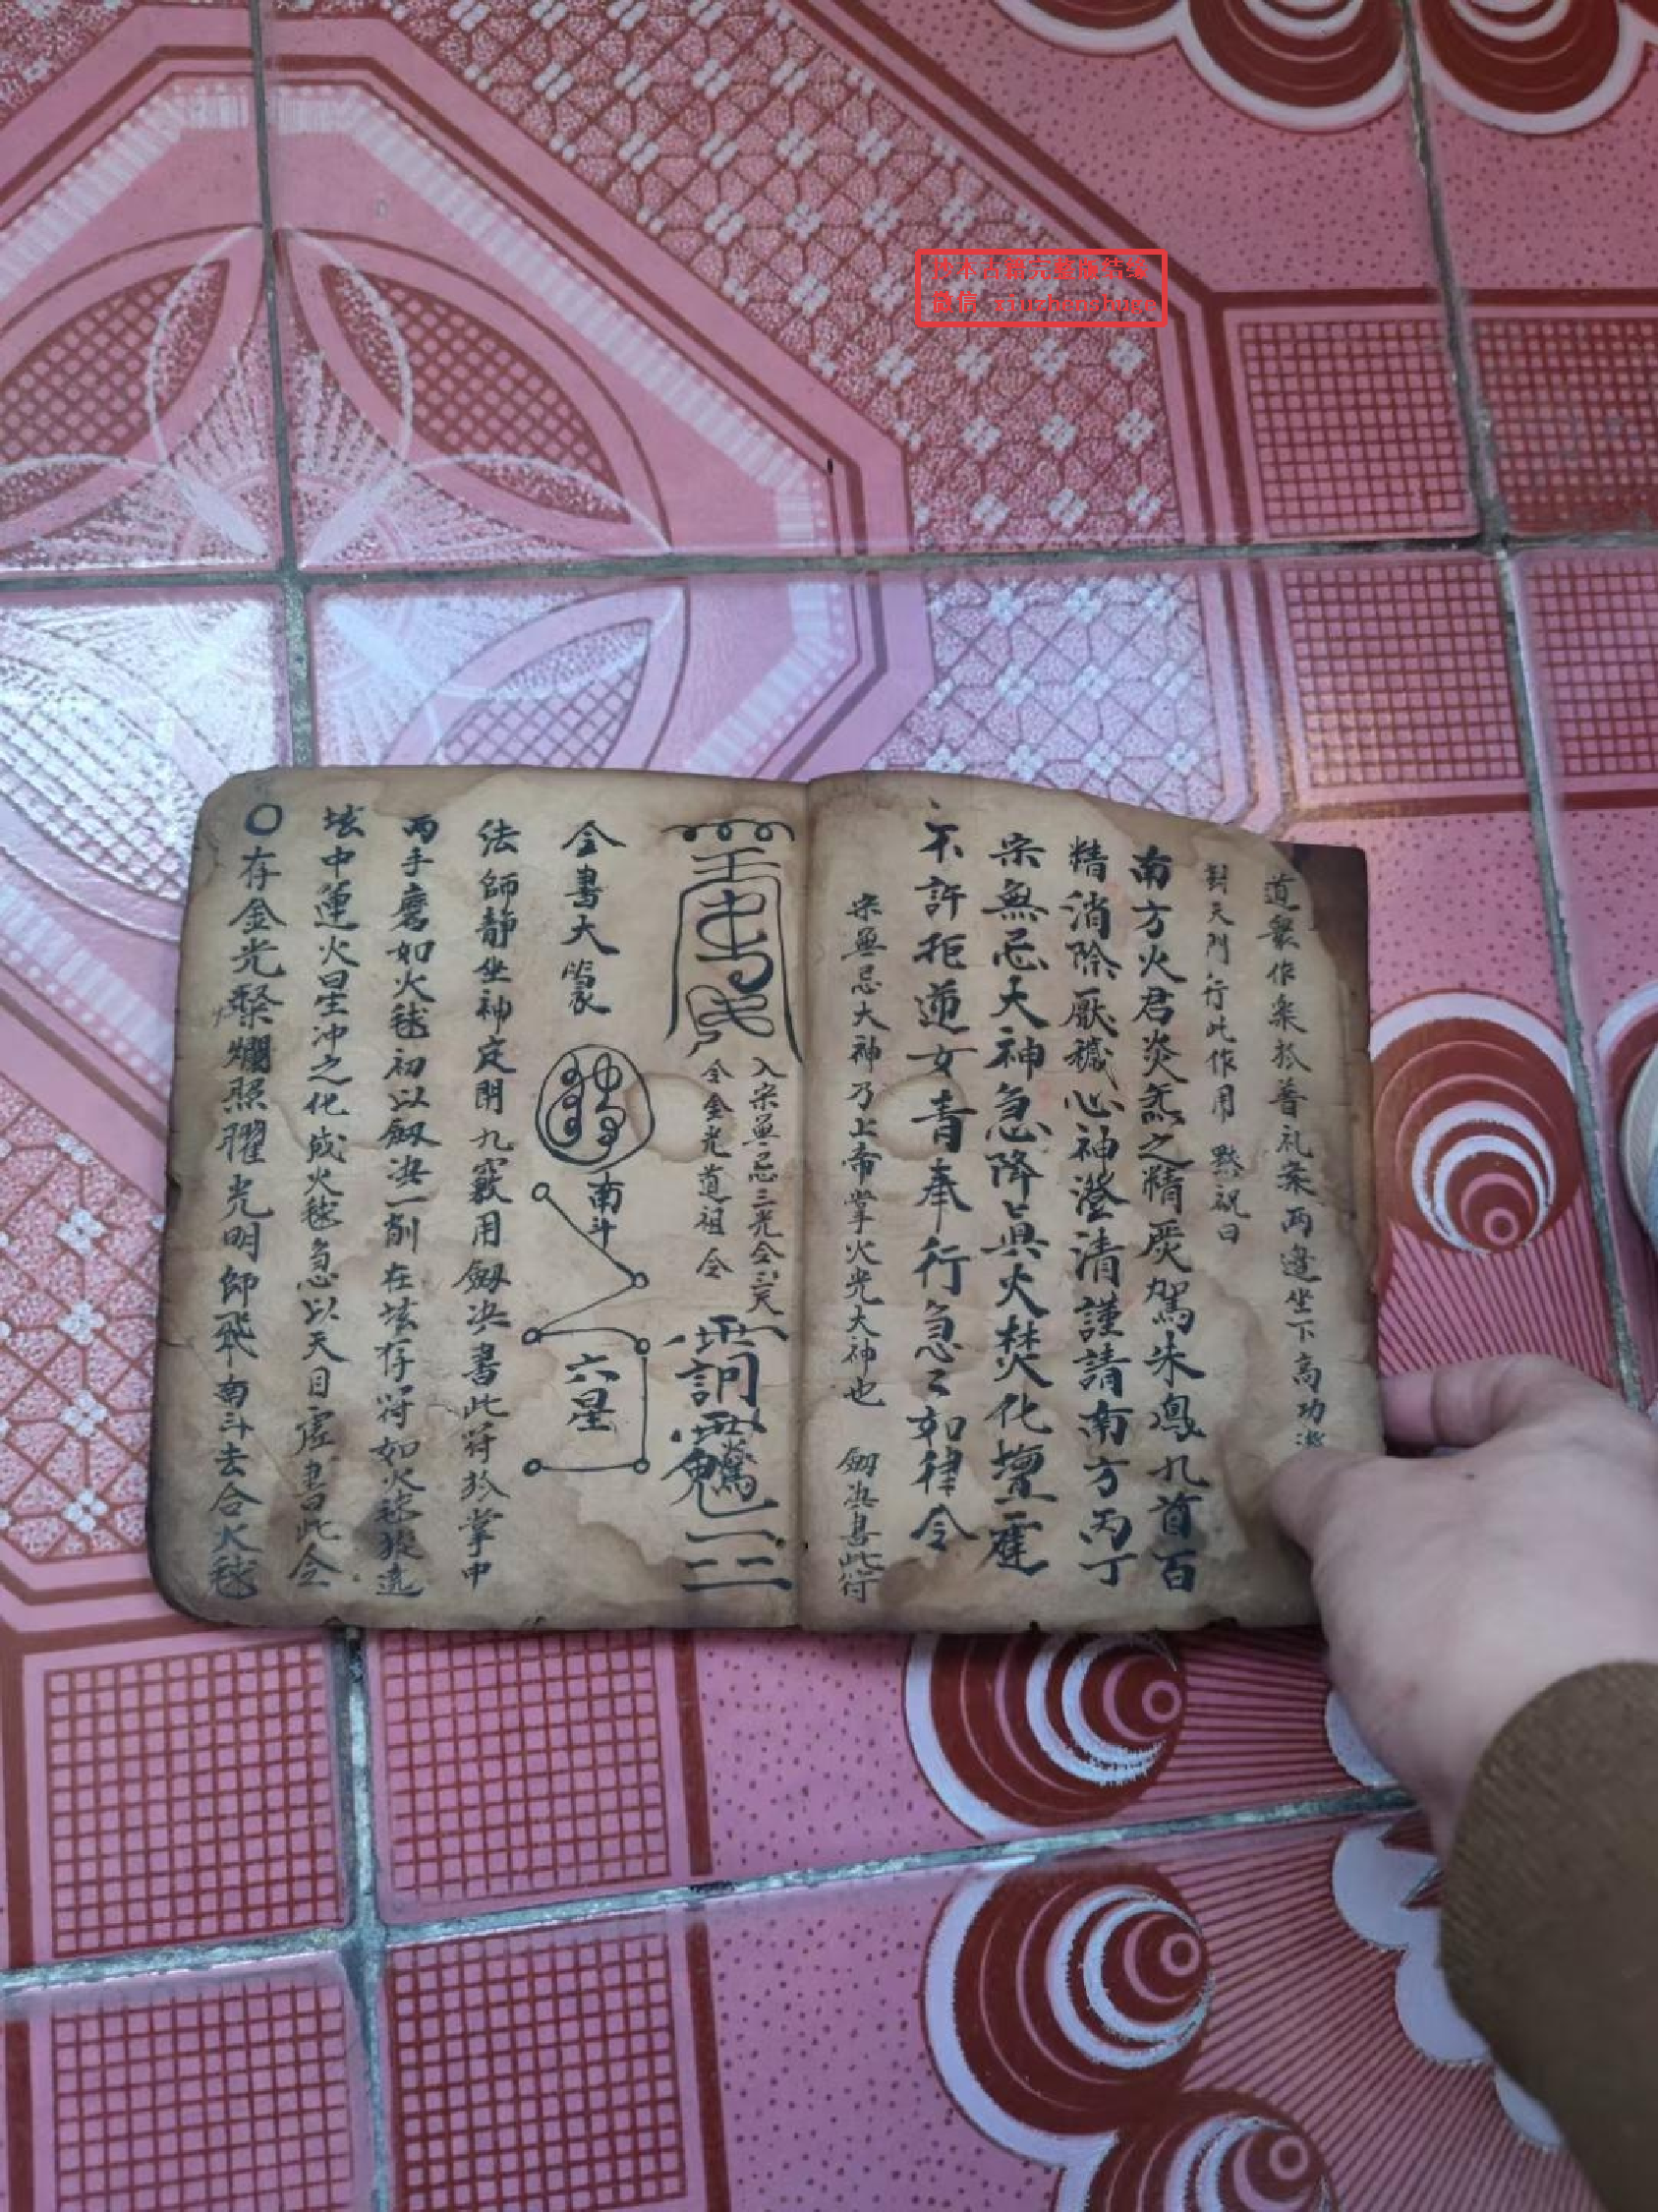 抄本古籍完整版结缘
微信 xiuzhenshuge
道眾作樂於普礼案兩邊坐下高功
對天門行此作用 黙祝曰
南方火君炎炁之精嚴駕朱鳳九首百
精消除厭穢心神澄清謹請南方丙丁
宋無忌大神急降真火焚化壇霆
不許拒逆女青奉行急〻如律令
宋無忌大神乃上帝掌火光大神也 劔决書此符
入宋無忌三光令
令金光道祖令
全書大篆
南斗
六星
法師静坐神定閉九竅用劔决書此符於掌中
兩手磨如火毬初以劔决一剖在垓存符如火毬
垓中運火星冲之化成火毬急以天目虚書此令
〇存金光燦爛照耀光明師飛南斗去合火毬